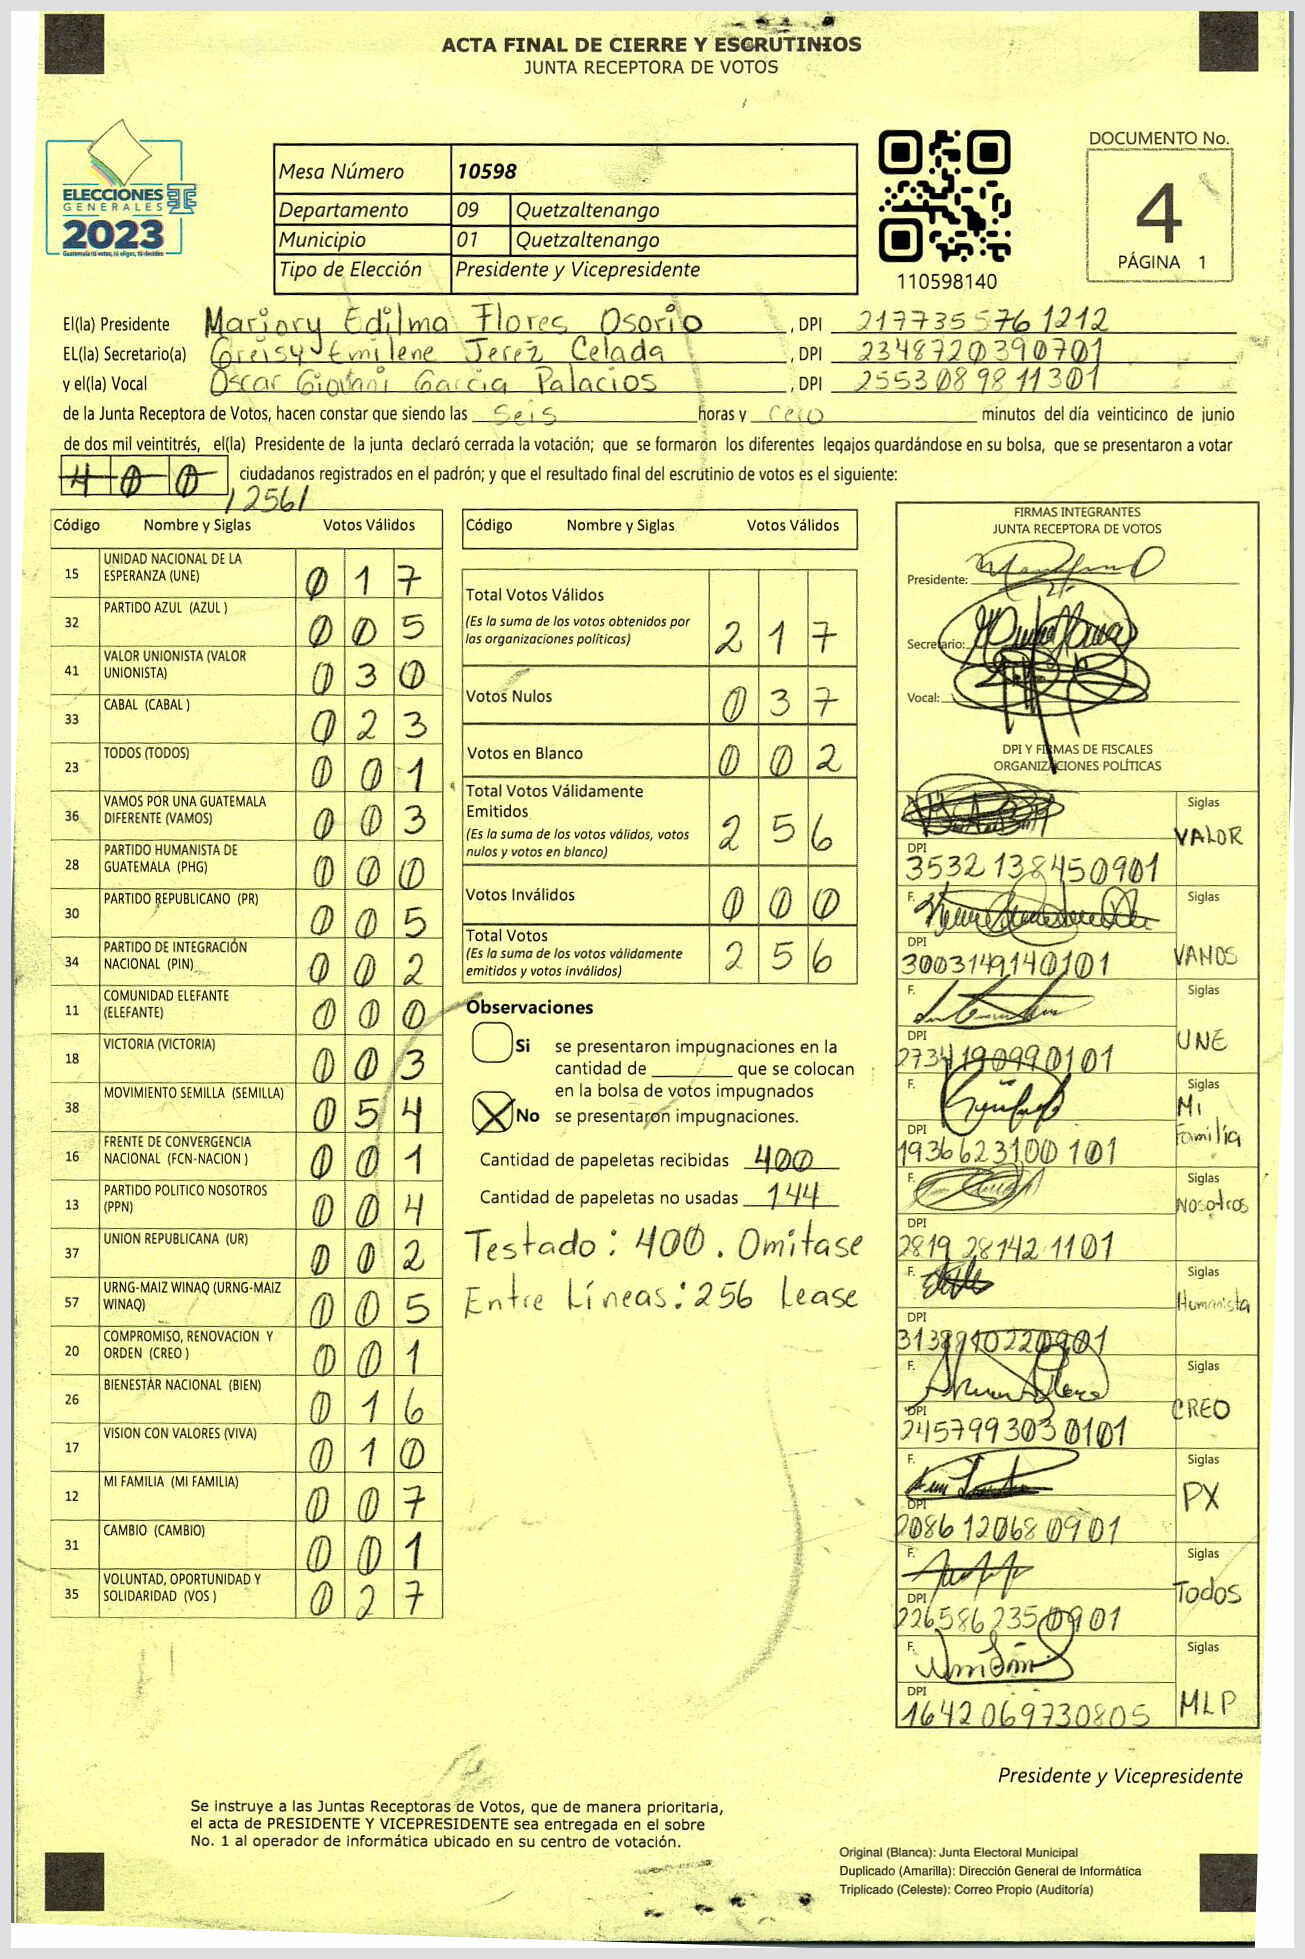 ACTA FINAL DE CIERRE Y ESCRUTINIOS
JUNTA RECEPTORA DE VOTOS
ELECCIONES
GENERALES
2023
Guatemala tú votas, tú eliges, tú decides
Mesa Número 10598
Departamento 09 Quetzaltenango
Municipio 01 Quetzaltenango
Tipo de Elección Presidente y Vicepresidente
110598140
DOCUMENTO No.
4
PÁGINA 1
El(la) Presidente Marjory Edilma Flores Osorio, DPI 2177355761212
EL(la) Secretario(a) Greisy Emilene Jerez Celada, DPI 2348720390701
y el(la) Vocal Oscar Giovani García Palacios, DPI 2553089811301
de la Junta Receptora de Votos, hacen constar que siendo las Seis horas y cero minutos del día veinticinco de junio
de dos mil veintitrés, el(la) Presidente de la junta declaró cerrada la votación; que se formaron los diferentes legajos quardándose en su bolsa, que se presentaron a votar
400 ciudadanos registrados en el padrón; y que el resultado final del escrutinio de votos es el siguiente:
/256/
Código Nombre y Siglas Votos Válidos
15 UNIDAD NACIONAL DE LA ESPERANZA (UNE) 017
32 PARTIDO AZUL (AZUL ) 005
41 VALOR UNIONISTA (VALOR UNIONISTA) 030
33 CABAL (CABAL ) 023
23 TODOS (TODOS) 001
36 VAMOS POR UNA GUATEMALA DIFERENTE (VAMOS) 003
28 PARTIDO HUMANISTA DE GUATEMALA (PHG) 000
30 PARTIDO REPUBLICANO (PR) 005
34 PARTIDO DE INTEGRACIÓN NACIONAL (PIN) 002
11 COMUNIDAD ELEFANTE (ELEFANTE) 000
18 VICTORIA (VICTORIA) 003
38 MOVIMIENTO SEMILLA (SEMILLA) 054
16 FRENTE DE CONVERGENCIA NACIONAL (FCN-NACION ) 001
13 PARTIDO POLITICO NOSOTROS (PPN) 004
37 UNION REPUBLICANA (UR) 002
57 URNG-MAIZ WINAQ (URNG-MAIZ WINAQ) 005
20 COMPROMISO, RENOVACION Y ORDEN (CREO ) 001
26 BIENESTAR NACIONAL (BIEN) 016
17 VISION CON VALORES (VIVA) 010
12 MI FAMILIA (MI FAMILIA) 007
31 CAMBIO (CAMBIO) 001
35 VOLUNTAD, OPORTUNIDAD Y SOLIDARIDAD (VOS ) 027
Código Nombre y Siglas Votos Válidos
Total Votos Válidos 217
(Es la suma de los votos obtenidos por
las organizaciones políticas)
Votos Nulos 037
Votos en Blanco 002
Total Votos Válidamente
Emitidos 256
(Es la suma de los votos válidos, votos
nulos y votos en blanco)
Votos Inválidos 000
Total Votos 256
(Es la suma de los votos válidamente
emitidos y votos inválidos)
Observaciones
Si se presentaron impugnaciones en la
cantidad de ________ que se colocan
en la bolsa de votos impugnados
X No se presentaron impugnaciones.
Cantidad de papeletas recibidas 400
Cantidad de papeletas no usadas 144
Testado: 400. Omitase
Entre Líneas: 256 Lease
FIRMAS INTEGRANTES
JUNTA RECEPTORA DE VOTOS
Presidente:
Secretario:
Vocal:
DPI Y FIRMAS DE FISCALES
ORGANIZACIONES POLÍTICAS
Siglas VALOR
DPI 3532138450901
F. Siglas VAMOS
DPI 3003149140101
F. Siglas UNE
DPI 2734190990101
F. Siglas Mi Familia
DPI 1936623100101
F. Siglas Nosotros
DPI 2819281421101
F. Siglas Humanista
DPI 3138910220901
F. Siglas CREO
DPI 2457993030101
F. Siglas PX
DPI 2086120680901
F. Siglas Todos
DPI 2265862350901
F. Siglas MLP
DPI 1642069730805
Presidente y Vicepresidente
Se instruye a las Juntas Receptoras de Votos, que de manera prioritaria,
el acta de PRESIDENTE Y VICEPRESIDENTE sea entregada en el sobre
No. 1 al operador de informática ubicado en su centro de votación.
Original (Blanca): Junta Electoral Municipal
Duplicado (Amarilla): Dirección General de Informática
Triplicado (Celeste): Correo Propio (Auditoría)